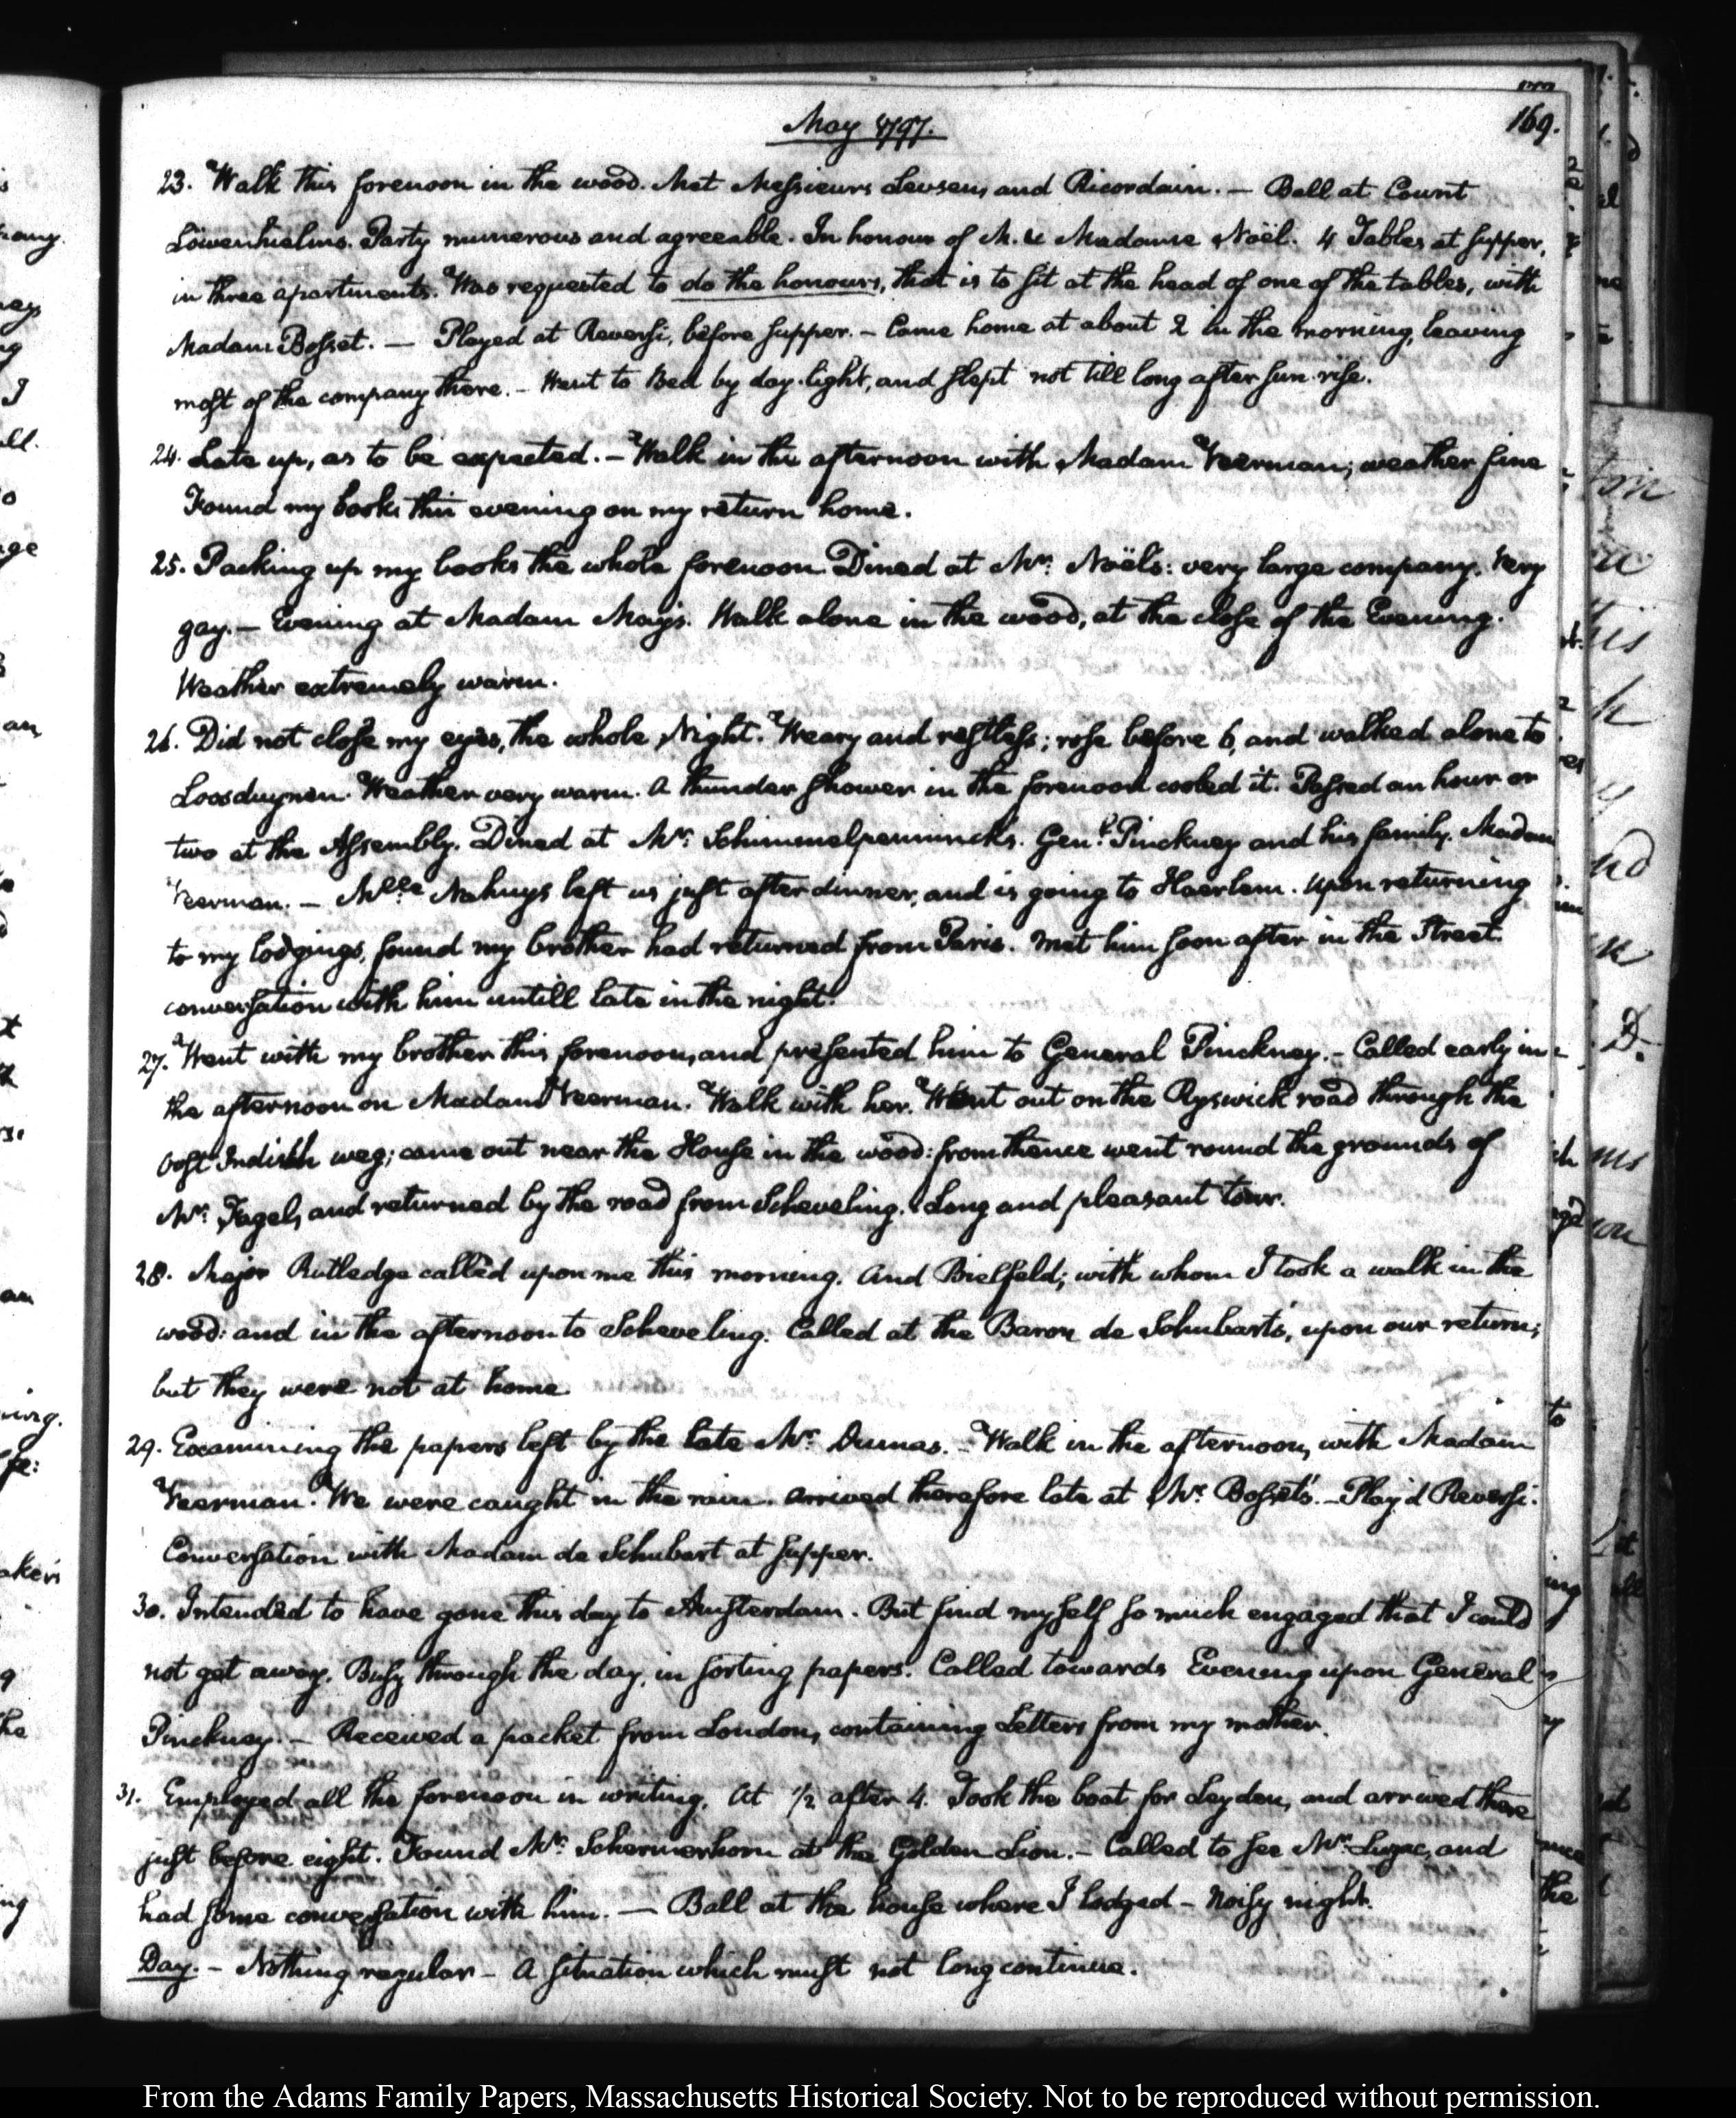 169.
May 1797.
23. Walk this forenoon in the wood. Met Messieurs Levsen, and Ricordain. — Ball at Count
Löwenhielms. Party numerous and agreeable. In honour of M. & Madame Noël. 4 Tables at supper,
in three apartments. Was requested to do the honours, that is to sit at the head of one of the tables, with
Madam Bosset. — Played at Reversi, before supper. — Came home at about 2 in the morning, leaving
most of the company there. — Went to Bed by day-light, and slept not till long after sun-rise.
24. Late up, as to be expected. — Walk in the afternoon with Madam Veerman; weather fine
Found my books this evening on my return home.
25. Packing up my books the whole forenoon. Dined at Mr. Noël's: very large company. Very
gay. — Evening at Madam May's. Walk alone in the wood, at the close of the Evening.
Weather extremely warm.
26. Did not close my eyes, the whole Night. Weary and restless; rose before 6, and walked alone to
Loosduynen. Weather very warm. A thunder shower in the forenoon cooled it. Passed an hour or
two at the Assembly. Dined at Mr. Schimmelpenninck's. Genl. Pinckney and his family. Madam
Veerman. — Mlle Nahuys left us just after dinner, and is going to Haerlem. Upon returning
to my lodgings, found my brother had returned from Paris. Met him soon after in the Street.
conversation with him untill late in the night.
27. Went with my brother this forenoon, and presented him to General Pinckney. — Called early in
the afternoon on Madam Veerman. Walk with her. Went out on the Ryswick road through the
Oost Indisch weg; came out near the House in the wood: from thence went round the grounds of
Mr. Fagel, and returned by the road from Scheveling. Long and pleasant tour.
28. Major Rutledge called upon me this morning. And Bielfeld; with whom I took a walk in the
wood: and in the afternoon to Scheveling. Called at the Baron de Schubart's, upon our return;
but they were not at home.
29. Examining the papers left by the late Mr. Dumas. — Walk in the afternoon, with Madam
Veerman. We were caught in the rain. arrived therefore late at Mr. Bosset's. — Play'd Reversi.
Conversation with Madam de Schubart at supper.
30. Intended to have gone this day to Amsterdam. But find myself so much engaged that I could
not get away. Busy through the day, in sorting papers. Called towards Evening upon General
Pinckney. — Received a packet from London, containing Letters from my mother.
31. Employed all the forenoon in writing. At 1/2 after 4. Took the boat for Leyden, and arrived there
just before eight. Found Mr. Schermerhorn at the Golden Lion. — Called to see Mr. Luzac, and
had some conversation with him. — Ball at the house where I lodged — Noisy night.
Day. — Nothing regular — A situation which must not long continue.
From the Adams Family Papers, Massachusetts Historical Society. Not to be reproduced without permission.